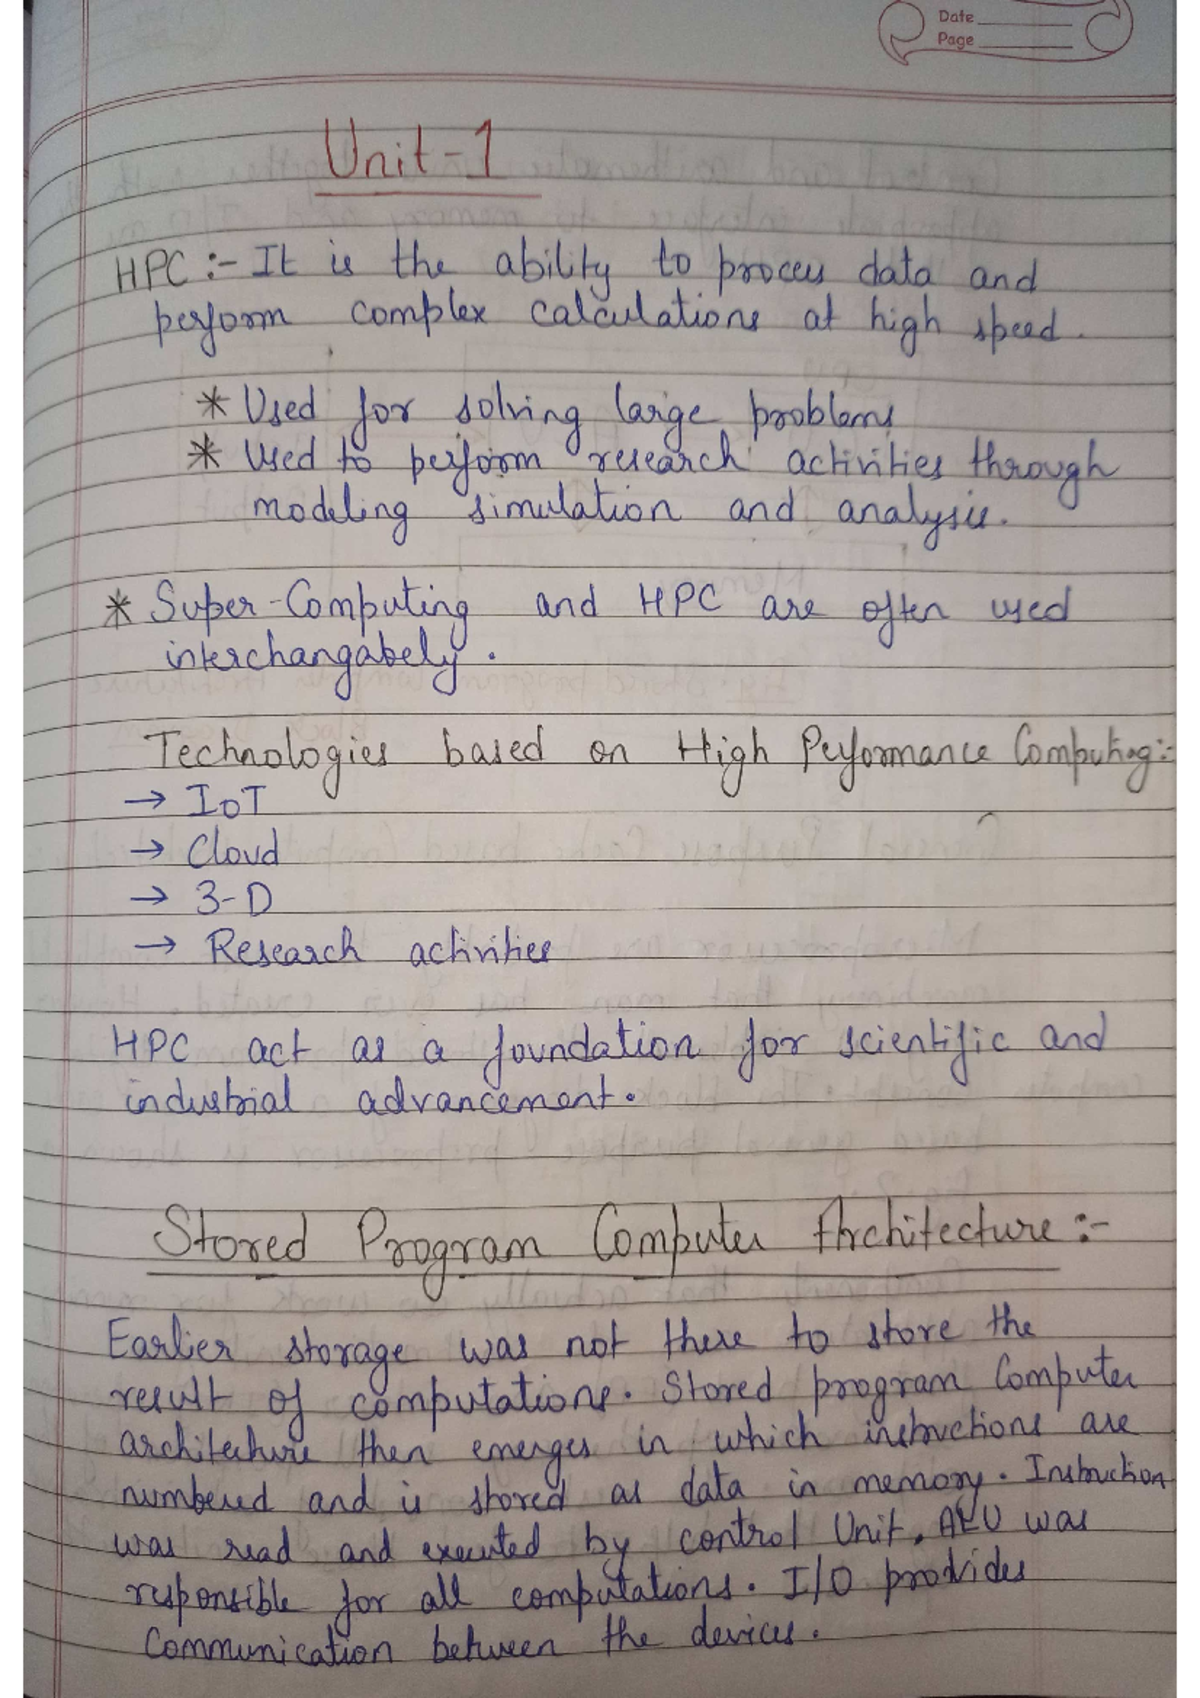 Date
Page
Unit-1
HPC :- It is the ability to process data and
perform complex calculations at high speed.
* Used for solving large problems
* Used to perform research activities through
modeling simulation and analysis.
* Super-Computing and HPC are often used
interchangabely.
Technologies based on High Performance Computing:-
→ IoT
→ Cloud
→ 3-D
→ Research activities
HPC act as a foundation for scientific and
industrial advancement.
Stored Program Computer Architecture :-
Earlier storage was not there to store the
result of computations. Stored program Computer
architecture then emerges in which instructions are
numbered and is stored as data in memory. Instruction
was read and executed by control Unit. ALU was
responsible for all computations. I/O provides
Communication between the devices.